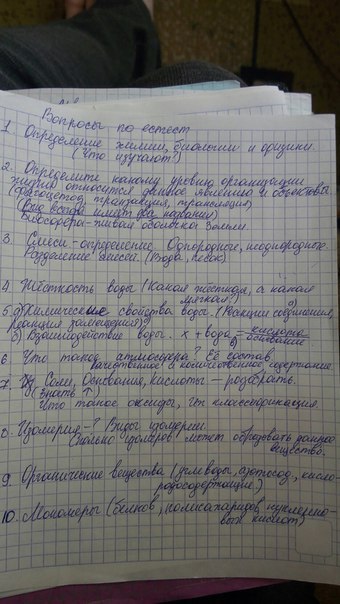 Вопросы по естест
1. Определение химии, биологии и физики.
(Что изучают?)
2. Определите какому уровню организации
жизни относится данное явлению и объектовы
(фагоцетоз, транзляция, трансляция)
(Вид всегда имеет два названия)
Биосфера - живая оболочка Земли.
3. Смеси - определение. Однородные, неоднородные.
Разделение смесей. (Вода, песок)
4. Жёсткость воды (Какая жёсткая, а какая
мягкая?)
5. а) Химические свойства воды. (Реакции соединения,
Реакция замещения)?
б) Взаимодействие воды. x + вода = кислота
основание
6. Что такое атмосфера? Её состав.
Качественное и количественное содержание.
7. Соли, Основания, кислоты - разобрать.
(знать ↑)
Что такое оксиды, их классификация.
8. Изомерия - ? Виды изомерии.
Сколько изомеров может образовать данное
вещество.
9. Органические вещества (углеводы, азотсод., кисло-
родосодержащие)
10. Мономеры (белков, полисахаридов, нуклеино-
вых кислот)